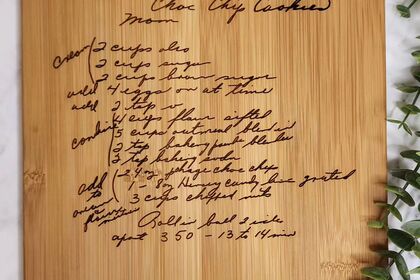 Choc Chip Cookies
Mom
cream 2 cups oleo
2 cups sugar
2 cups brown sugar
add 4 eggs on at time
add 2 tsp v
combine 4 cups flour sifted
5 cups oatmeal blended
2 tsp baking powder
2 tsp baking soda
add to 24 oz choc chips
1 - 8 oz Hershey candy bar grated
3 cups chopped nuts
Roll in ball 2
apart 350 - 13 to 14 min